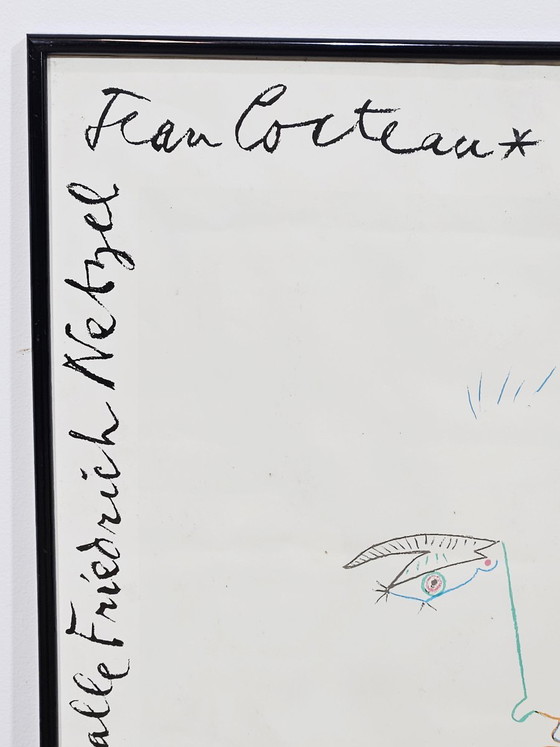 Jean Cocteau*
alle Friedrich Netzel